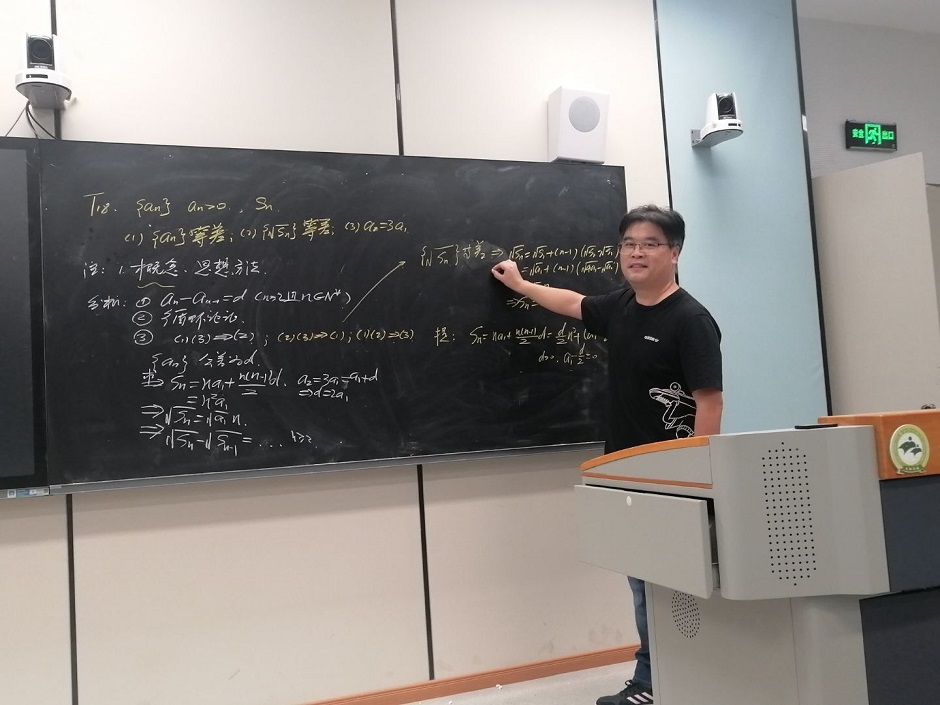 T18. {an} an>0, Sn
(1) {an}等差; (2) {√Sn}等差; (3) a2=3a1
注: 1. 概念、思想方法.
分析: ① an-an-1=d (n≥2且n∈N*)
②
③ (1)(3)⇒(2); (2)(3)⇒(1); (1)(2)⇒(3)
{an} 公差为d.
⇒ Sn=na1+n(n-1)/2 d. a2=3a1=a1+d
=n²a1 ⇒d=2a1
⇒√Sn=√a1 n.
⇒√Sn-√Sn-1=.... n≥2
{√Sn}等差⇒√Sn=√S1+(n-1)(√S2-√S1)
=√a1+(n-1)(√4a1-√a1)
⇒Sn=
Sn=na1+n(n-1)/2 d=d/2 n²+(a1
d>0. a1-d/2=0
安全出口